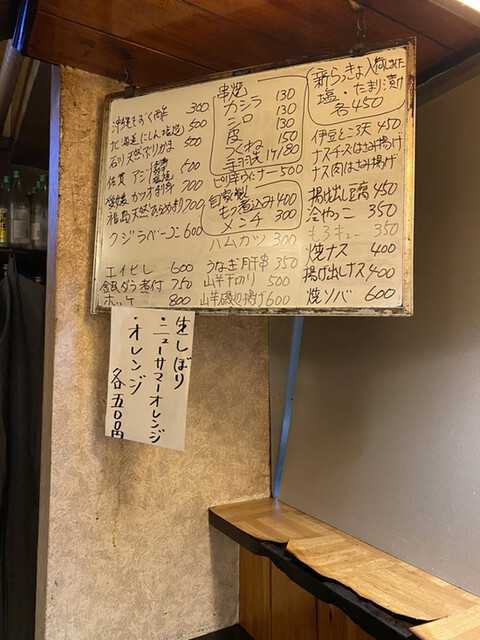 沖縄もずく酢 300
北海道にしん塩焼 500
石川天然ブリかま 500
佐賀 アジ 600
愛媛 カツオ刺身 700
福島天然 700
クジラベーコン 600
エイヒレ 600
銀ダラ煮付 750
ホッケ 800
串焼
カシラ 130
シロ 130
皮 130
つくね 150
手羽先 1ケ/180
ピリ辛ウィンナー 500
自家製
もつ煮込み 400
メンチ 300
ハムカツ 300
うなぎ肝串 350
山芋千切り 500
山芋磯辺揚げ 600
新らっきょ入荷しました
塩・たまり漬け
各450
伊豆ところ天 450
ナスチーズはさみ揚げ
ナス肉はさみ揚げ
揚げ出し豆腐 450
冷やっこ 350
もろキュー 350
焼ナス 400
揚げ出しナス 400
焼ソバ 600
生しぼり
・ニューサマーオレンジ
・オレンジ
各五〇〇円